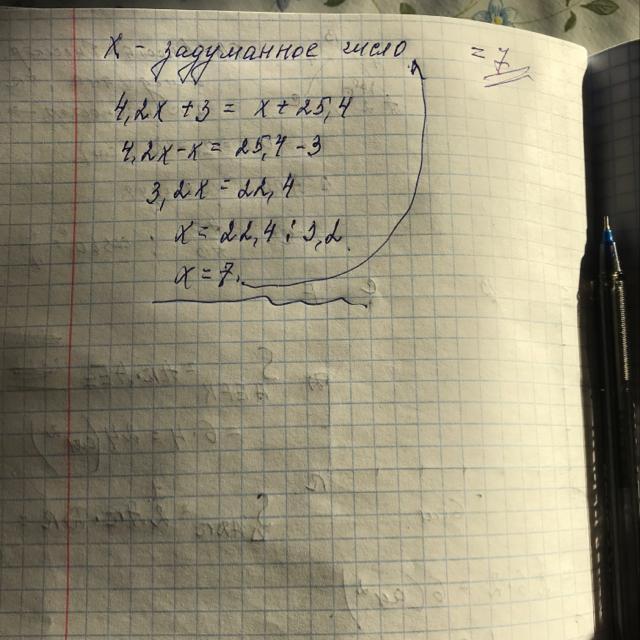 x - задуманное число = 7
4,2x + 3 = x + 25,4
4,2x - x = 25,4 - 3
3,2x = 22,4
x = 22,4 : 3,2
x = 7.